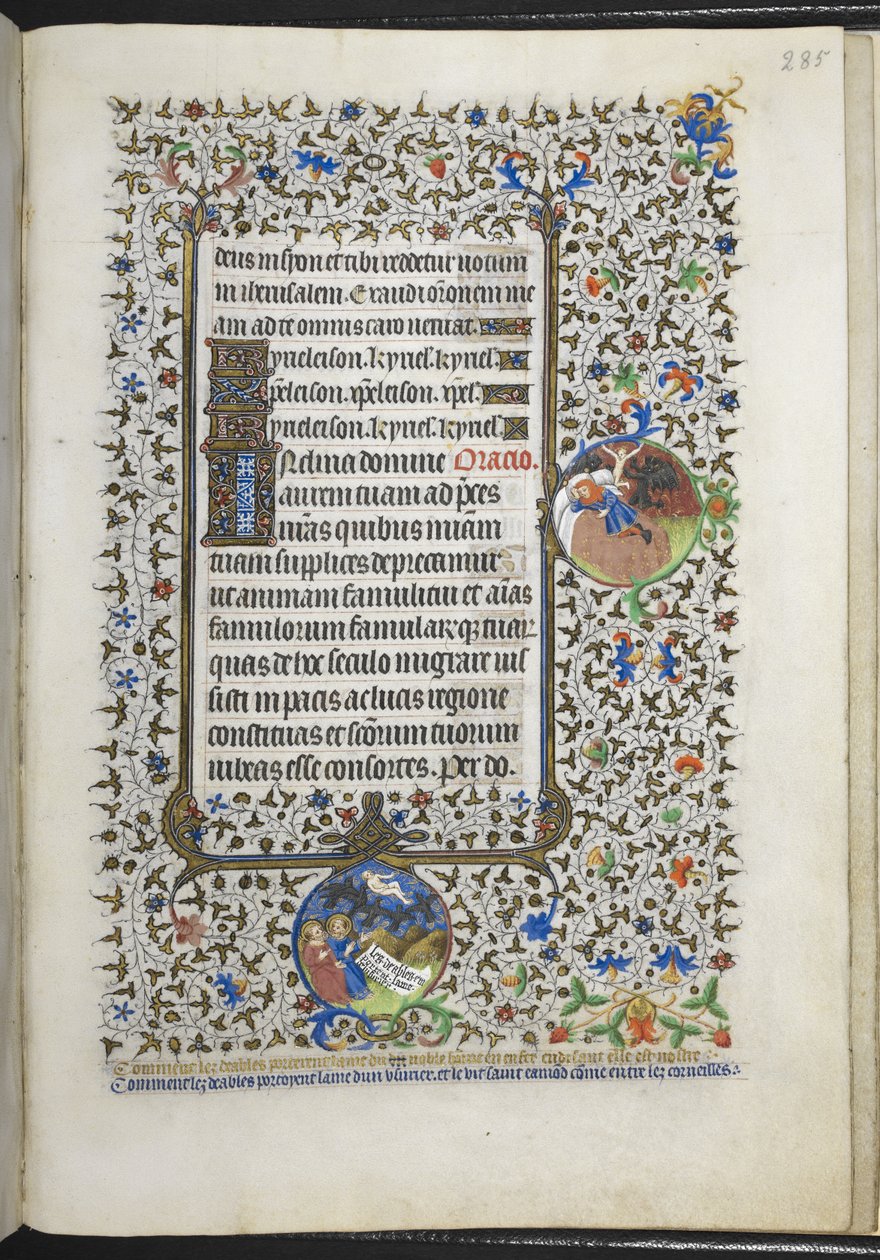 285
deus in syon et tibi reddetur uotum
in iherusalem. Exaudi or̄onem me
am ad te omnis caro ueniat.
Kyrieleison. kyriel. kyriel.
Xp̄eleison. xp̄eleison. xp̄el.
Kyrieleison. kyriel. kyriel.
Inclina domine Oracio.
aurem tuam ad p̄ces
nr̄as quibus mīam
tuam supplices deprecamur
ut animam famuli tui et aīas
famulorum famularꝫqꝫ tuaꝝ
quas de hoc seculo migrare ius
sisti in pacis ac lucis regione
constituas et sc̄orum tuorum
iubeas esse consortes. Per do.
Les deables em
portent lame
Comment lez deables porterent lame du dit noble home en enfer en disant elle est nostre
Comment lez deables portoyent lame dun usurier. et le vit saint eamod cōme entre lez corneilles.